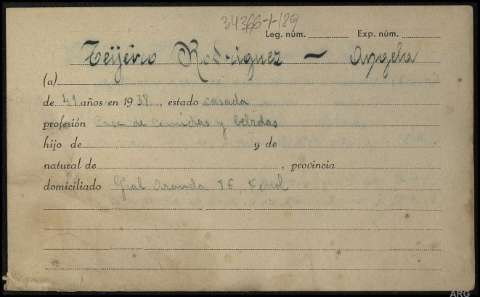 34366-1-189
Leg. núm. Exp. núm.
Teijeiro Rodriguez — Angela
(a)
de 41 años en 1938, estado casada
profesión Casa de comidas y bebidas
hijo de y de
natural de , provincia
domiciliado Gral Aranda 76 Ferrol
ARG